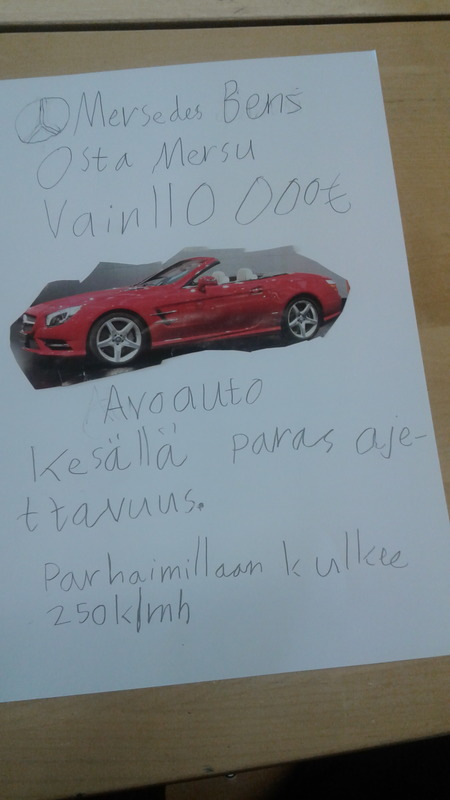 Mersedes Bens
Osta Mersu
Vain 110 000€
Avoauto
Kesällä paras aje-
ttavuus.
Parhaimillaan kulkee
250k/mh